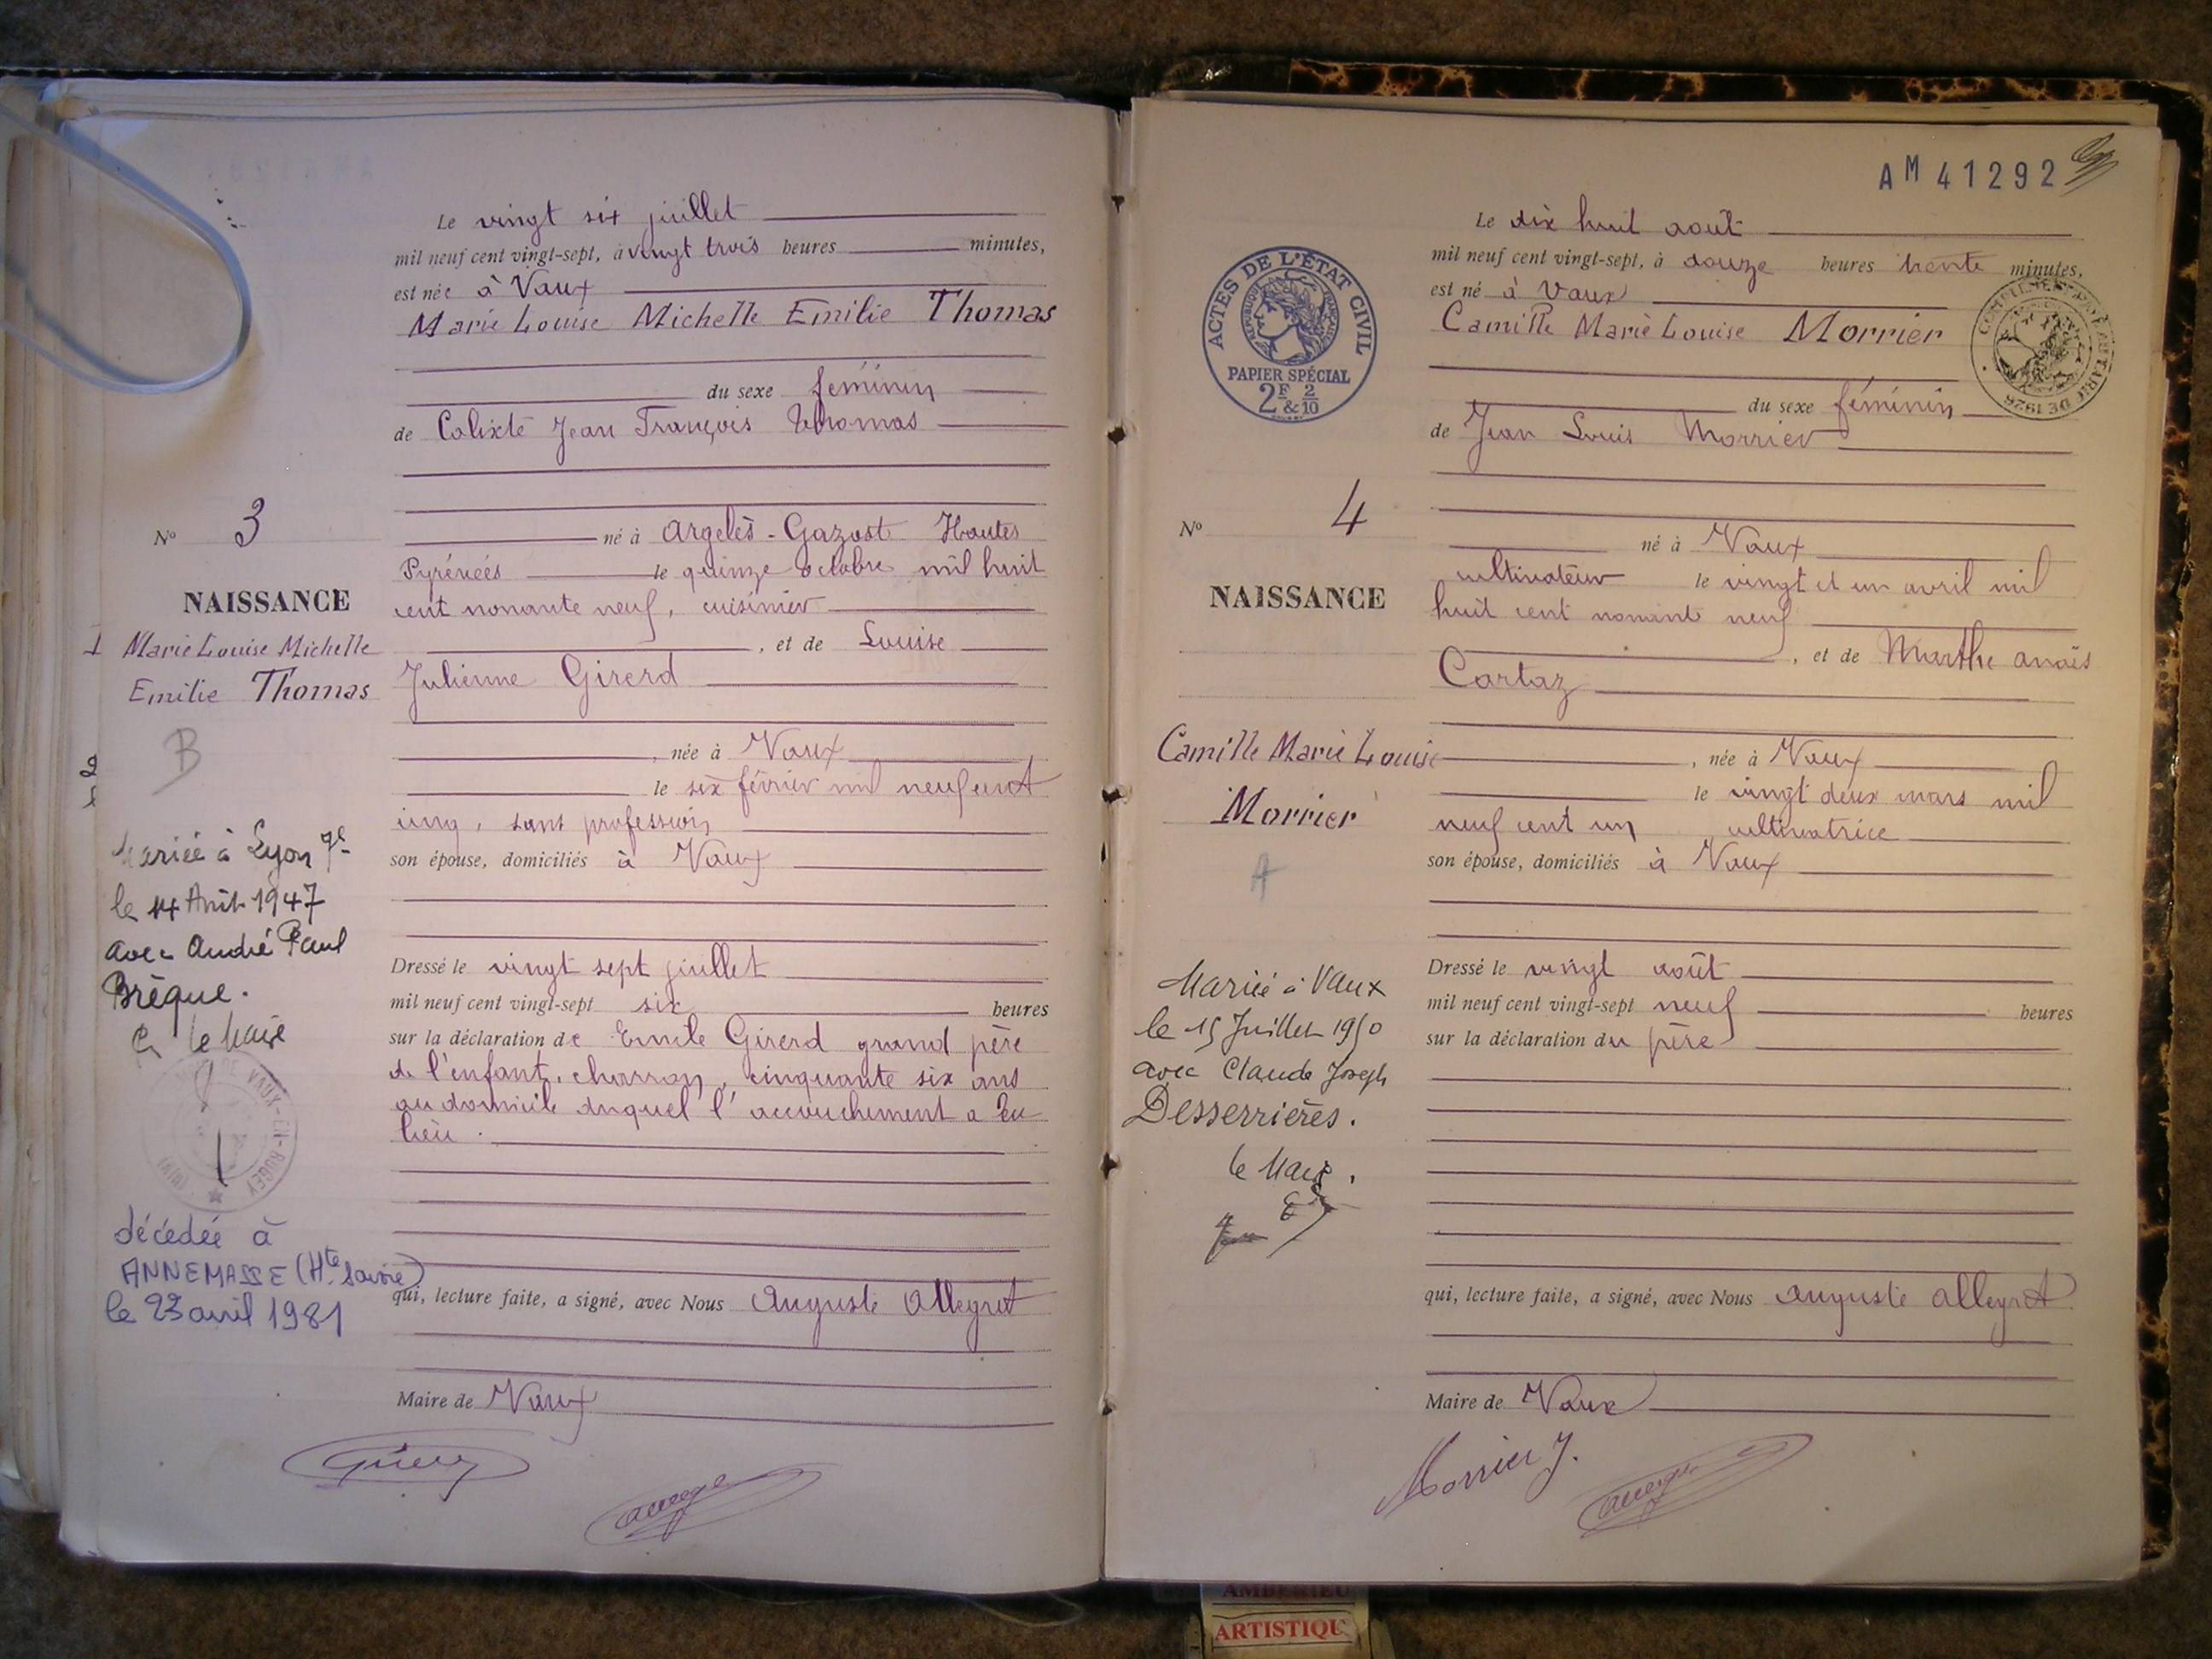 Le vingt six juillet
mil neuf cent vingt-sept, à vingt trois heures minutes,
est née à Vaux
Marie Louise Michelle Emilie Thomas
du sexe féminin
de Calixte Jean François Thomas
né à Argelès-Gazost Hautes
Pyrénées le quinze octobre mil huit
cent nonante neuf, cuisinier
, et de Louise
Julienne Girerd
, née à Vaux
le six février mil neuf cent
cinq, sans profession
son épouse, domiciliés à Vaux
Dressé le vingt sept juillet
mil neuf cent vingt-sept six heures
sur la déclaration de Emile Girerd grand père
de l'enfant, charron, cinquante six ans
au domicile duquel l'accouchement a eu
lieu.
qui, lecture faite, a signé, avec Nous Auguste Alleyret
Maire de Vaux
No 3
NAISSANCE
1 Marie Louise Michelle
Emilie Thomas
B
Mariée à Lyon 7e
le 14 Août 1947
avec André Paul
Brèque.
le Maire
DE VAUX-EN-BUGEY
(AIN)
décédée à
ANNEMASSE (Hte Savoie)
le 23 avril 1981
AM 41292
Le dix huit août
mil neuf cent vingt-sept, à douze heures trente minutes,
est né à Vaux
Camille Marie Louise Morrier
du sexe féminin
de Jean Louis Morrier
né à Vaux
cultivateur le vingt et un avril mil
huit cent nonante neuf
, et de Marthe Anaïs
Cartaz
, née à Vaux
le vingt deux mars mil
neuf cent un cultivatrice
son épouse, domiciliés à Vaux
Dressé le vingt août
mil neuf cent vingt-sept neuf heures
sur la déclaration du père
qui, lecture faite, a signé, avec Nous Auguste Alleyret
Maire de Vaux
Morrier J.
ACTES DE L'ÉTAT CIVIL
RÉPUBLIQUE FRANÇAISE
PAPIER SPÉCIAL
2F & 2/10
No 4
NAISSANCE
Camille Marie Louise
Morrier
A
Mariée à Vaux
le 15 Juillet 1950
avec Claude Joseph
Desserrières.
le Maire.
AMBERIEU
ARTISTIQU